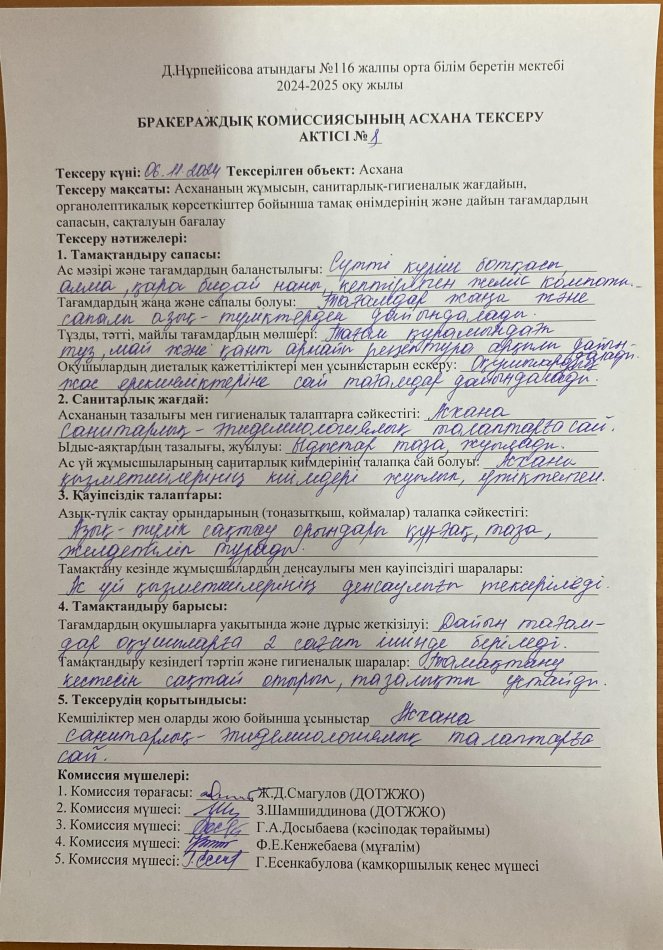 Д.Нұрпейісова атындағы №116 жалпы орта білім беретін мектебі
2024-2025 оқу жылы
БРАКЕРАЖДЫҚ КОМИССИЯСЫНЫҢ АСХАНА ТЕКСЕРУ
АКТІСІ № 8
Тексеру күні: 06.11.2024 Тексерілген объект: Асхана
Тексеру мақсаты: Асхананың жұмысын, санитарлық-гигиеналық жағдайын,
органолептикалық көрсеткіштер бойынша тамақ өнімдерінің және дайын тағамдардың
сапасын, сақталуын бағалау
Тексеру нәтижелері:
1. Тамақтандыру сапасы:
Ас мәзірі және тағамдардың баланстылығы: Сүтті күріш ботқасы,
алма, қара бидай наны, кептірілген жеміс компоты.
Тағамдардың жаңа және сапалы болуы: Тағамдар жаңа және
сапалы азық-түліктерден дайындалады.
Тұзды, тәтті, майлы тағамдардың мөлшері: Тағам құрамындағы
тұз, май және қант арнайы рецептура арқылы дайын-
далады.
Оқушылардың диеталық қажеттіліктері мен ұсыныстарын ескеру: Оқушылардың
жас ерекшеліктеріне сай тағамдар дайындалады.
2. Санитарлық жағдай:
Асхананың тазалығы мен гигиеналық талаптарға сәйкестігі: Асхана
санитарлық-эпидемиологиялық талаптарға сай.
Ыдыс-аяқтардың тазалығы, жуылуы: Ыдыстар таза, жуылады.
Ас үй жұмысшыларының санитарлық киімдерінің талапқа сай болуы: Асхана
қызметшілерінің киімдері жуылып, үтіктелген.
3. Қауіпсіздік талаптары:
Азық-түлік сақтау орындарының (тоңазытқыш, қоймалар) талапқа сәйкестігі:
Азық-түлік сақтау орындары құрғақ, таза,
желдетіліп тұрады.
Тамақтану кезінде жұмысшылардың денсаулығы мен қауіпсіздігі шаралары:
Ас үй қызметшілерінің денсаулығы тексеріледі.
4. Тамақтандыру барысы:
Тағамдардың оқушыларға уақытында және дұрыс жеткізілуі: Дайын тағам-
дар оқушыларға 2 сағат ішінде беріледі.
Тамақтандыру кезіндегі тәртіп және гигиеналық шаралар: Тамақтану
кестесін сақтай отырып, тазалықты ұстайды.
5. Тексерудің қорытындысы:
Кемшіліктер мен оларды жою бойынша ұсыныстар Асхана
санитарлық-эпидемиологиялық талаптарға
сай.
Комиссия мүшелері:
1. Комиссия төрағасы: Ж.Д.Смагулов (ДОТЖЖО)
2. Комиссия мүшесі: З.Шамшиддинова (ДОТЖЖО)
3. Комиссия мүшесі: Г.А.Досыбаева (кәсіподақ төрайымы)
4. Комиссия мүшесі: Ф.Е.Кенжебаева (мұғалім)
5. Комиссия мүшесі: Г.Есенкабулова (қамқоршылық кеңес мүшесі